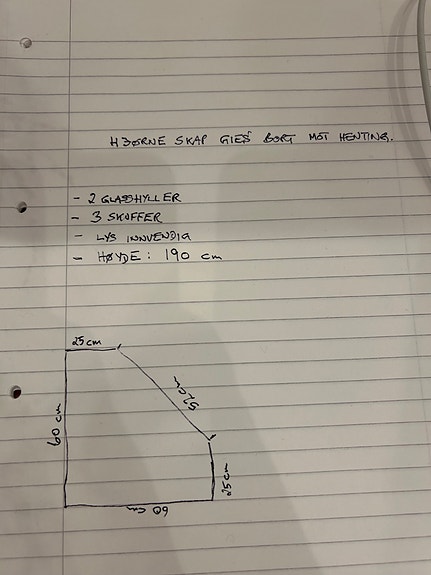 HJØRNE SKAP GIES BORT MOT HENTING.
- 2 GLASSHYLLER
- 3 SKUFFER
- LYS INNVENDIG
- HØYDE: 190 cm
25 cm
52 cm
60 cm
25 cm
60 cm